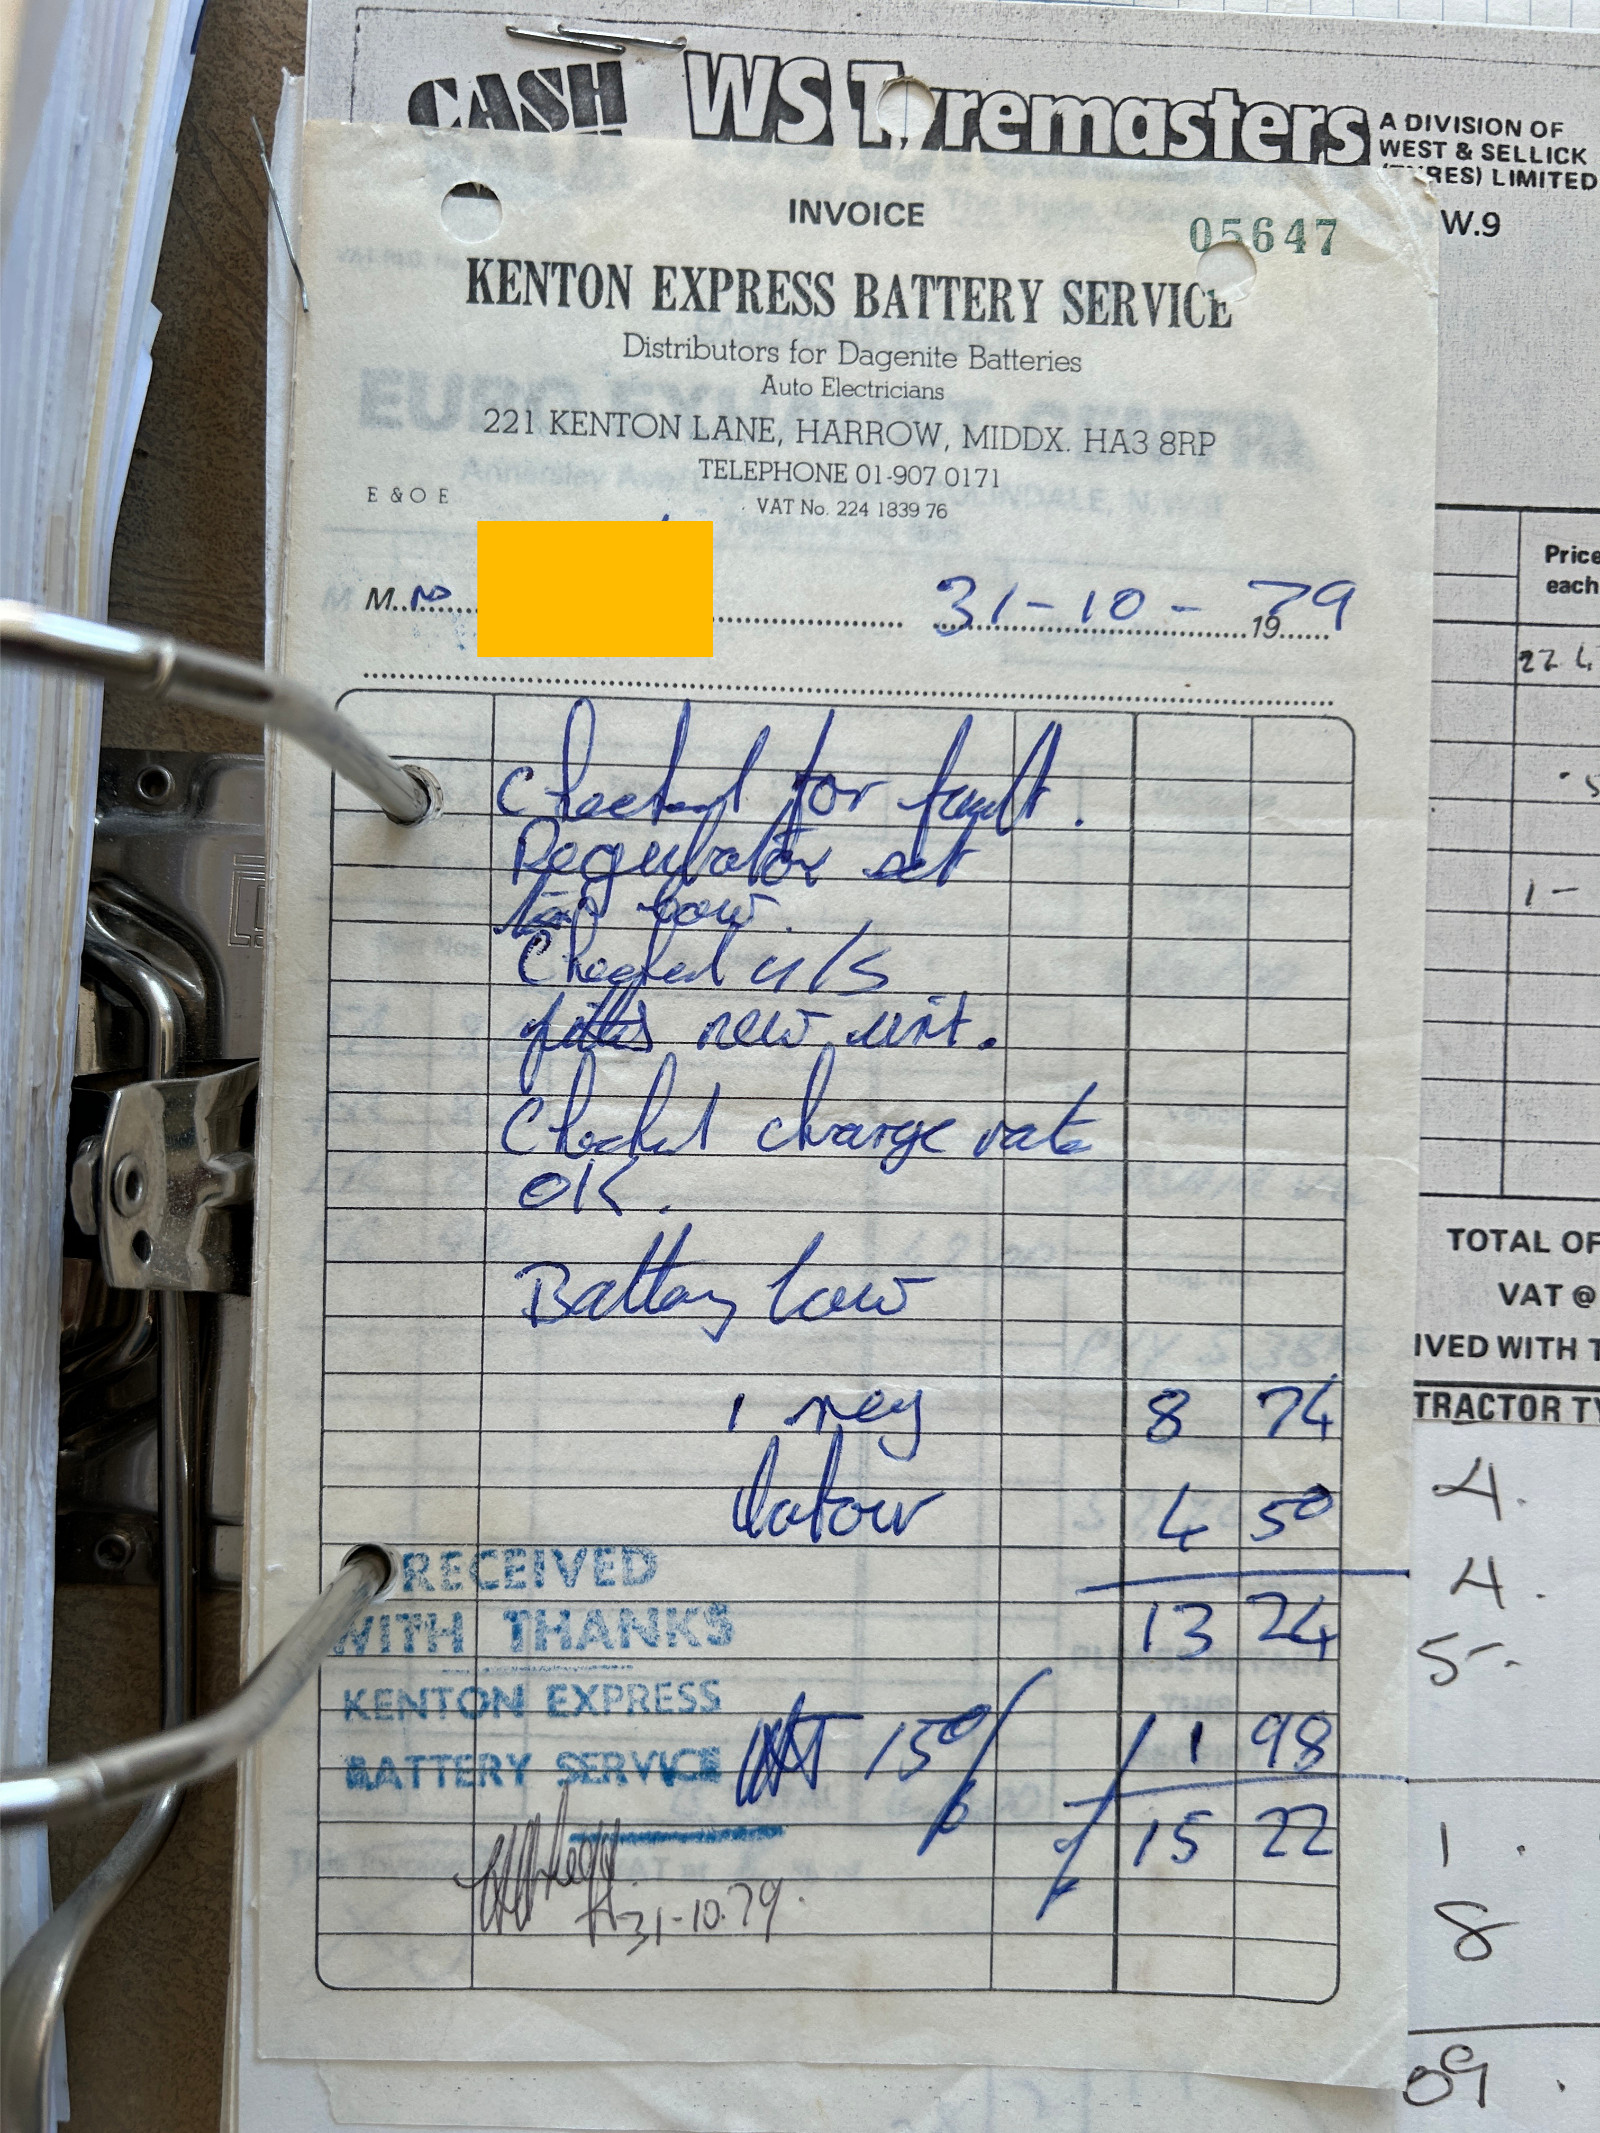 CASH WS Tyremasters A DIVISION OF
WEST & SELLICK
(TYRES) LIMITED
W.9
INVOICE
05647
KENTON EXPRESS BATTERY SERVICE
Distributors for Dagenite Batteries
Auto Electricians
221 KENTON LANE, HARROW, MIDDX. HA3 8RP
TELEPHONE 01-907 0171
VAT No. 224 1839 76
E & O E
M
31-10-1979
Checked for fault.
Regulator set
too low.
Checked u/s
fitted new unit.
Checked charge rate
OK.
Battery low
1 reg 8 74
labour 4 50
13 24
VAT 15% 1 98
15 22
RECEIVED
WITH THANKS
KENTON EXPRESS
BATTERY SERVICE
31-10-79.
Price
each
1 -
TOTAL OF
VAT @
IVED WITH T
TRACTOR TY
4.
4.
5-.
1 .
8
09 .